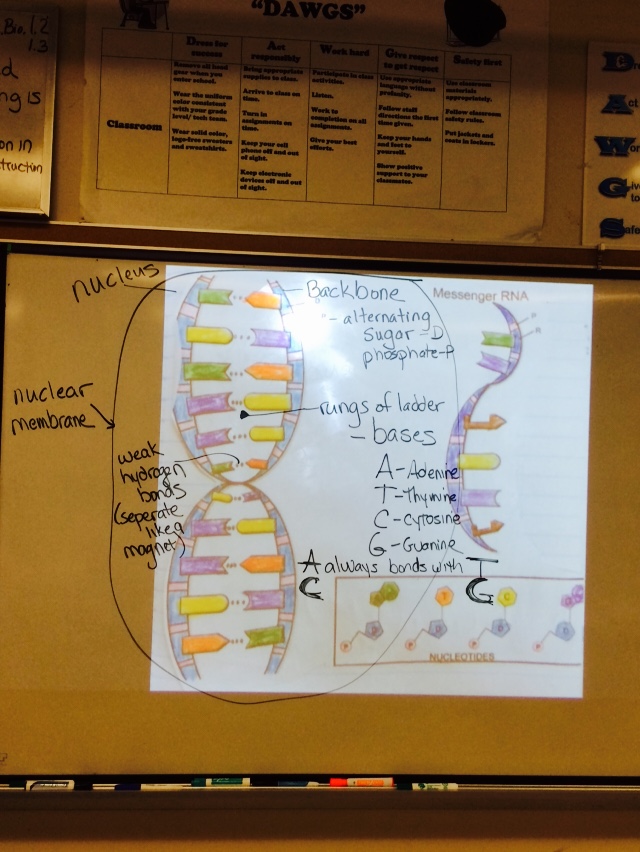 Bio. 1.2
1.3
ng is
on in
struction
"DAWGS"
Dress for success
Act responsibly
Work hard
Give respect to get respect
Safety first
Classroom
Remove all head gear when you enter school.
Wear the uniform color consistent with your grade level/ tech team.
Wear solid color, logo-free sweaters and sweatshirts.
Bring appropriate supplies to class.
Arrive to class on time.
Turn in assignments on time.
Keep your cell phone off and out of sight.
Keep electronic devices off and out of sight.
Participate in class activities.
Listen.
Work to completion on all assignments.
Give your best efforts.
Use appropriate language without profanity.
Follow staff directions the first time given.
Keep your hands and feet to yourself.
Show positive support to your classmates.
Use classroom materials appropriately.
Follow classroom safety rules.
Put jackets and coats in lockers.
D
Act
Wor
Give
to
Safe
nucleus
nuclear
membrane
weak
hydrogen
bonds
(seperate
like a
magnet)
Backbone
- alternating
sugar - D
phosphate-P
rungs of ladder
- bases
A - Adenine
T - Thymine
C - Cytosine
G - Guanine
A always bonds with T
C G
Messenger RNA
P
R
D D D D
P P P P
T C
NUCLEOTIDES